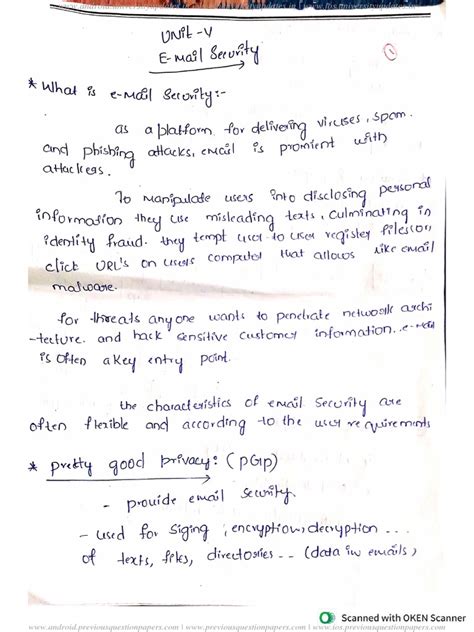 UNIT-V
E-mail Security
①
* What is e-mail Security:-
as a platform for delivering viruses, spam.
and phishing attacks, email is promient with
attackers.
To manipulate users into disclosing personal
information they use misleading texts, culminating in
identity fraud. they tempt user to user register files(or)
click URL's on users computer that allows like email
malware.
for threats anyone wants to penetrate network archi
-tecture. and hack sensitive customer information. e-mail
is often a key entry point.
the characteristics of email Security are
often flexible and according to the user requirements
* pretty good privacy: (PGP)
- provide email security.
- used for siging, encryption, decryption ...
of texts, files, directories .. (data in emails)
Scanned with OKEN Scanner
www.android.previousquestionpapers.com | www.previousquestionpapers.com | www.ios.previousquestionpapers.com